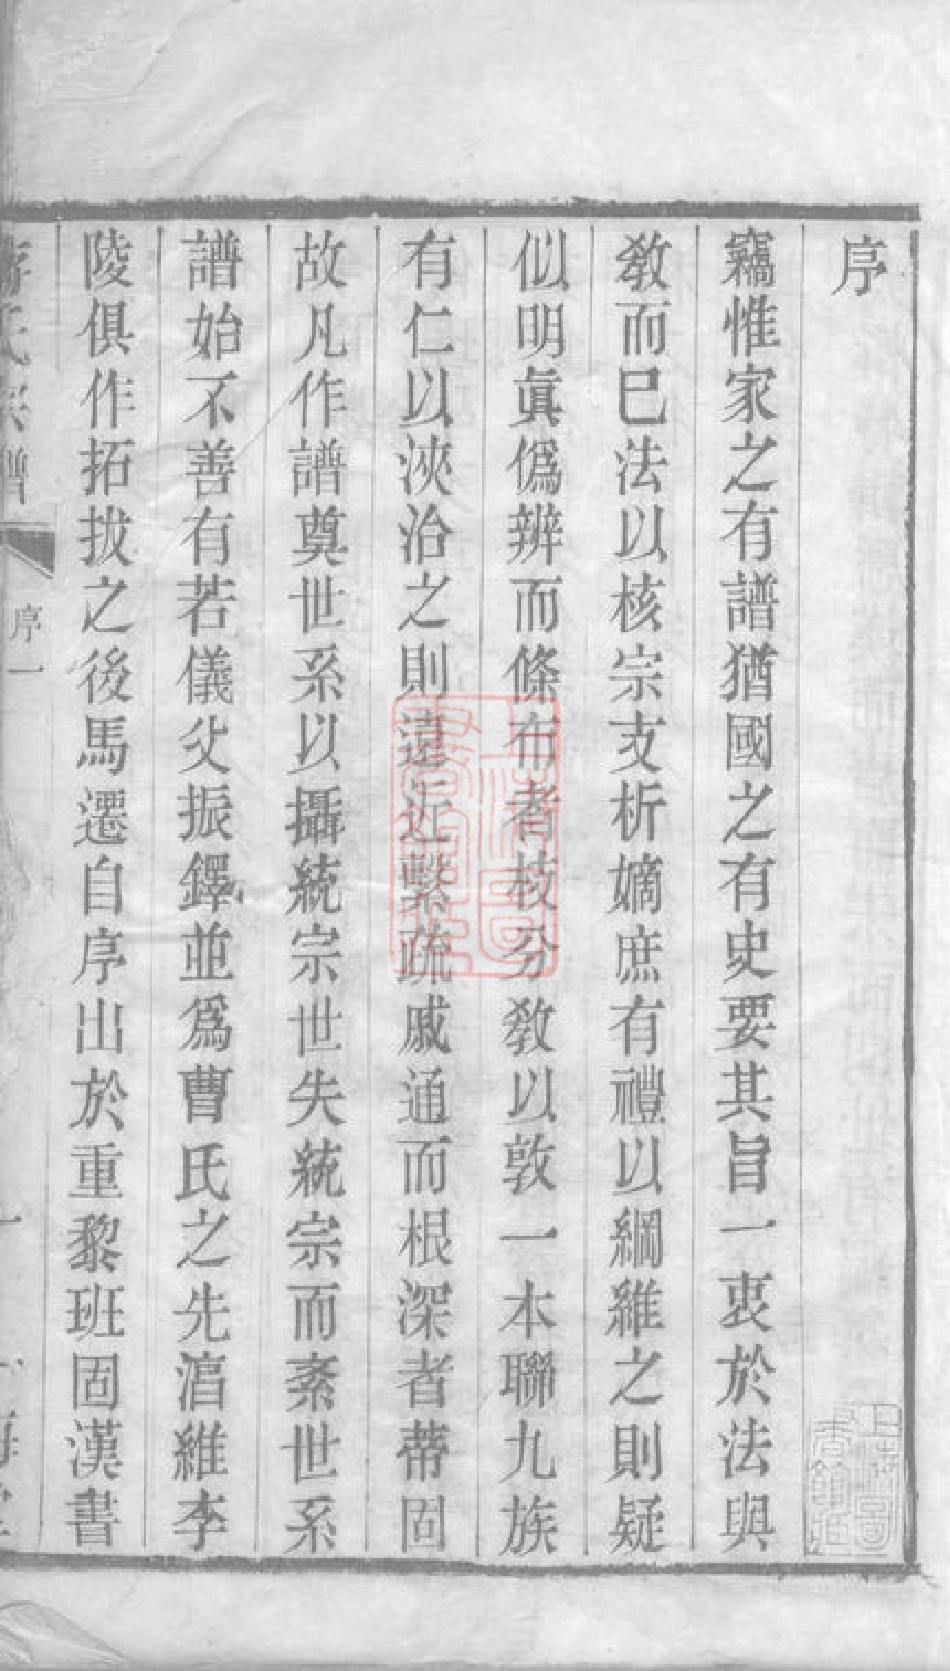 序
竊惟家之有譜猶國之有史要其旨一衷於法與
敎而已法以核宗支析嫡庶有禮以綱維之則疑
似明眞僞辨而條布者核分敎以敦一本聯九族
有仁以浹治之則遠近繫疏戚通而根深者蒂固
故凡作譜奠世系以攝統宗世失統宗而紊世系
譜始不善有若儀父振鐸並爲曹氏之先滔維李
陵俱作拓拔之後馬遷自序出於重黎班固漢書
氏宗譜
序一
上海圖書館藏
上海圖書館藏